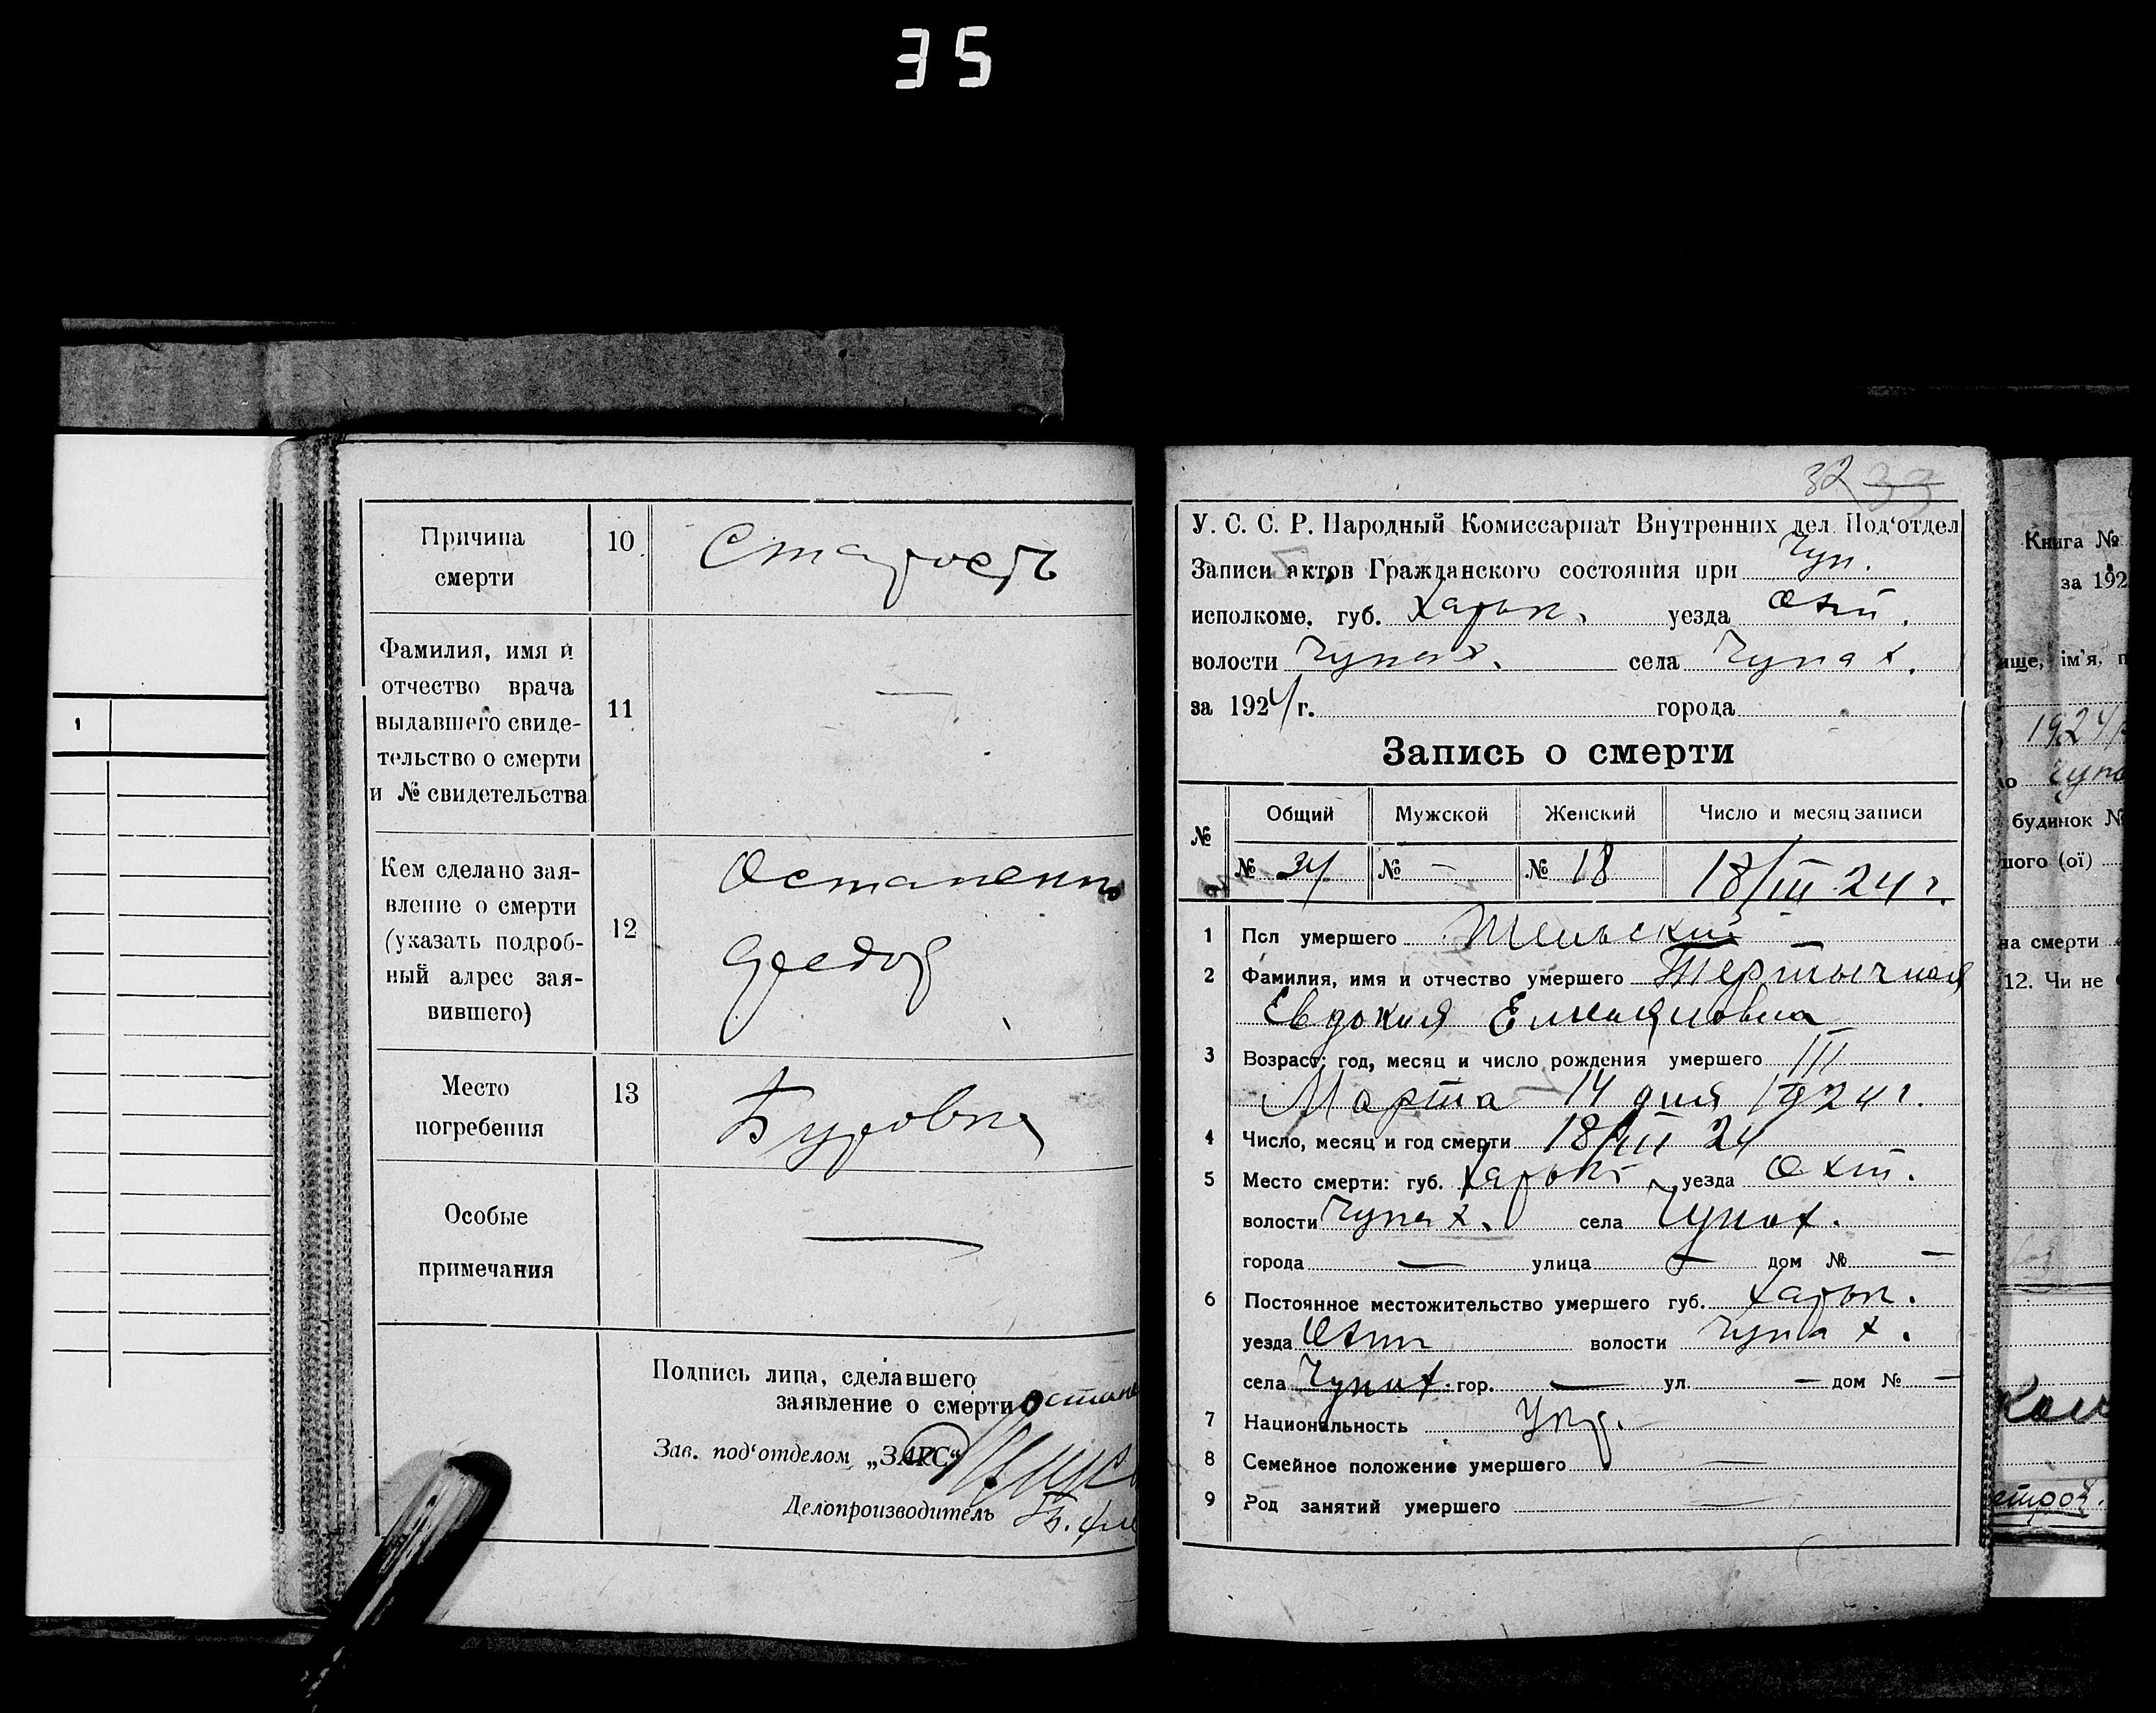 35
Причина
смерти
10
Старость
Фамилия, имя и
отчество врача
выдавшего свиде-
тельство о смерти
и № свидетельства
11
—
Кем сделано зая-
вление о смерти
(указать подроб-
ный адрес зая-
вившего)
12
Остапенко
Федор
Место
погребения
13
Особые
примечания
—
Подпись лица, сделавшего
заявление о смерти
Зав. под‘отделом „ЗАГС“
Делопроизводитель
1
32 33
У. С. С. Р. Народный Комиссариат Внутренних дел Под‘отдел
Записи актов Гражданского состояния при Чуп.
исполкоме. губ. Харьк. уезда Ахт.
волости Чупах. села Чупах.
за 1924 г. города
Запись о смерти
№ Общий Мужской Женский Число и месяц записи
№ 34 № — № 18 18/III 24 г.
1 Пол умершего Женский
2 Фамилия, имя и отчество умершего Тертычная
Евдокия Емельяновна
3 Возраст; год, месяц и число рождения умершего III
Марта — 14 дня 1924 г.
4 Число, месяц и год смерти 18/III 24
5 Место смерти: губ. Харьк уезда Ахт.
волости Чупах. села Чупах.
города — улица — дом № —
6 Постоянное местожительство умершего губ. Харьк.
уезда Ахт волости Чупах.
села Чупах. гор. — ул. — дом № —
7 Национальность Укр.
8 Семейное положение умершего —
9 Род занятий умершего —
Книга №
за 192
ім'я, п
1924
будинок №
ного (ої)
на смерти
12. Чи не